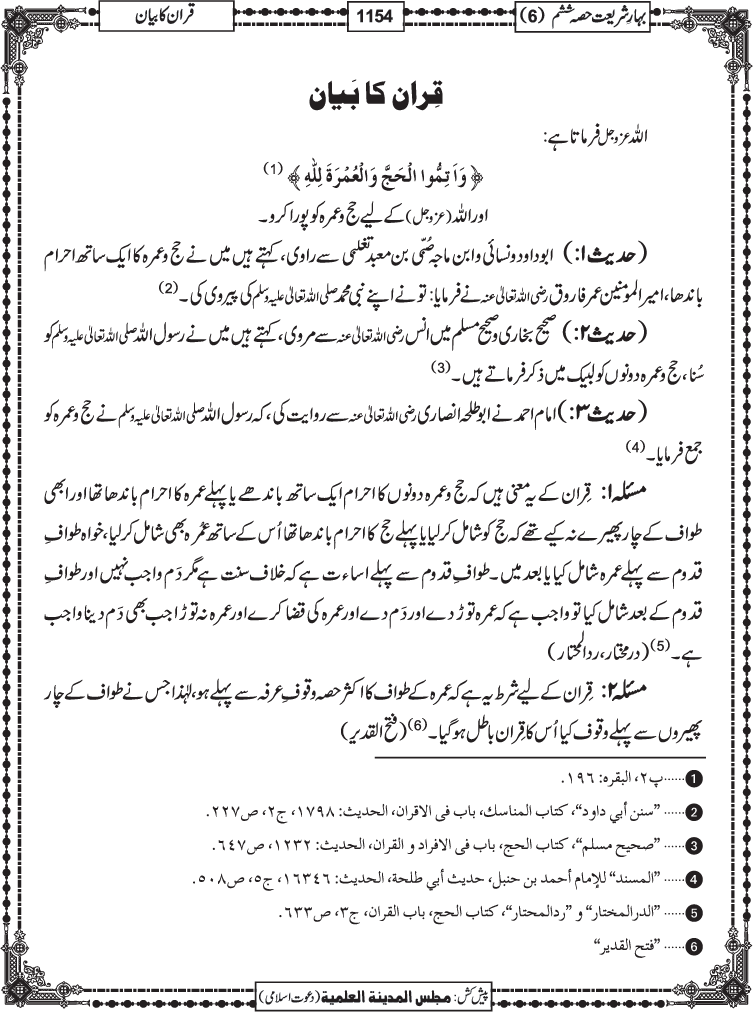 بہارِ شریعت حصہ ششم (6)
1154
قران کا بیان
قِران کا بَیان
اللہ عزوجل فرماتا ہے:
﴿ وَاَتِمُّوا الْحَجَّ وَالْعُمْرَةَ لِلّٰهِ ﴾ (1)
اور اللہ (عزوجل) کے لیے حج و عمرہ کو پورا کرو۔
(حدیث ۱:) ابو داود و نسائی و ابن ماجہ صُبَّی بن معبد تغلبی سے راوی، کہتے ہیں میں نے حج و عمرہ کا ایک ساتھ احرام
باندھا، امیر المومنین عمر فاروق رضی اللہ تعالیٰ عنہ نے فرمایا: تو نے اپنے نبی محمد صلی اللہ تعالیٰ علیہ وسلم کی پیروی کی۔(2)
(حدیث ۲:) صحیح بخاری و صحیح مسلم میں انس رضی اللہ تعالیٰ عنہ سے مروی، کہتے ہیں میں نے رسول اللہ صلی اللہ تعالیٰ علیہ وسلم کو
سُنا، حج و عمرہ دونوں کو لبیک میں ذکر فرماتے ہیں۔(3)
(حدیث ۳:) امام احمد نے ابو طلحہ انصاری رضی اللہ تعالیٰ عنہ سے روایت کی، کہ رسول اللہ صلی اللہ تعالیٰ علیہ وسلم نے حج و عمرہ کو
جمع فرمایا۔(4)
مسئلہ ۱: قِران کے یہ معنی ہیں کہ حج و عمرہ دونوں کا احرام ایک ساتھ باندھے یا پہلے عمرہ کا احرام باندھا تھا اور ابھی
طواف کے چار پھیرے نہ کیے تھے کہ حج کو شامل کر لیا یا پہلے حج کا احرام باندھا تھا اُس کے ساتھ عُمرہ بھی شامل کر لیا، خواہ طوافِ
قدوم سے پہلے عمرہ شامل کیا یا بعد میں۔ طوافِ قدوم سے پہلے اساءت ہے کہ خلاف سنت ہے مگر دَم واجب نہیں اور طوافِ
قدوم کے بعد شامل کیا تو واجب ہے کہ عمرہ توڑ دے اور دَم دے اور عمرہ کی قضا کرے اور عمرہ نہ توڑا جب بھی دَم دینا واجب
ہے۔(5) (درمختار، ردالمحتار)
مسئلہ ۲: قِران کے لیے شرط یہ ہے کہ عمرہ کے طواف کا اکثر حصہ وقوفِ عرفہ سے پہلے ہو، لہٰذا جس نے طواف کے چار
پھیروں سے پہلے وقوف کیا اُس کا قِران باطل ہوگیا۔(6) (فتح القدیر)
1......پ۲، البقرہ: ۱۹۶.
2......"سنن أبي داود"، كتاب المناسك، باب فى الاقران، الحديث: ۱۷۹۸، ج۲، ص۲۲۷.
3......"صحيح مسلم"، كتاب الحج، باب فى الافراد و القران، الحديث: ۱۲۳۲، ص۶۴۷.
4......"المسند" للإمام أحمد بن حنبل، حديث أبي طلحة، الحديث: ۱۶۳۴۶، ج۵، ص۵۰۸.
5......"الدرالمختار" و "ردالمحتار"، كتاب الحج، باب القران، ج۳، ص۶۳۳.
6......"فتح القدير"
پیش کش: مجلس المدینة العلمیة (دعوت اسلامی)